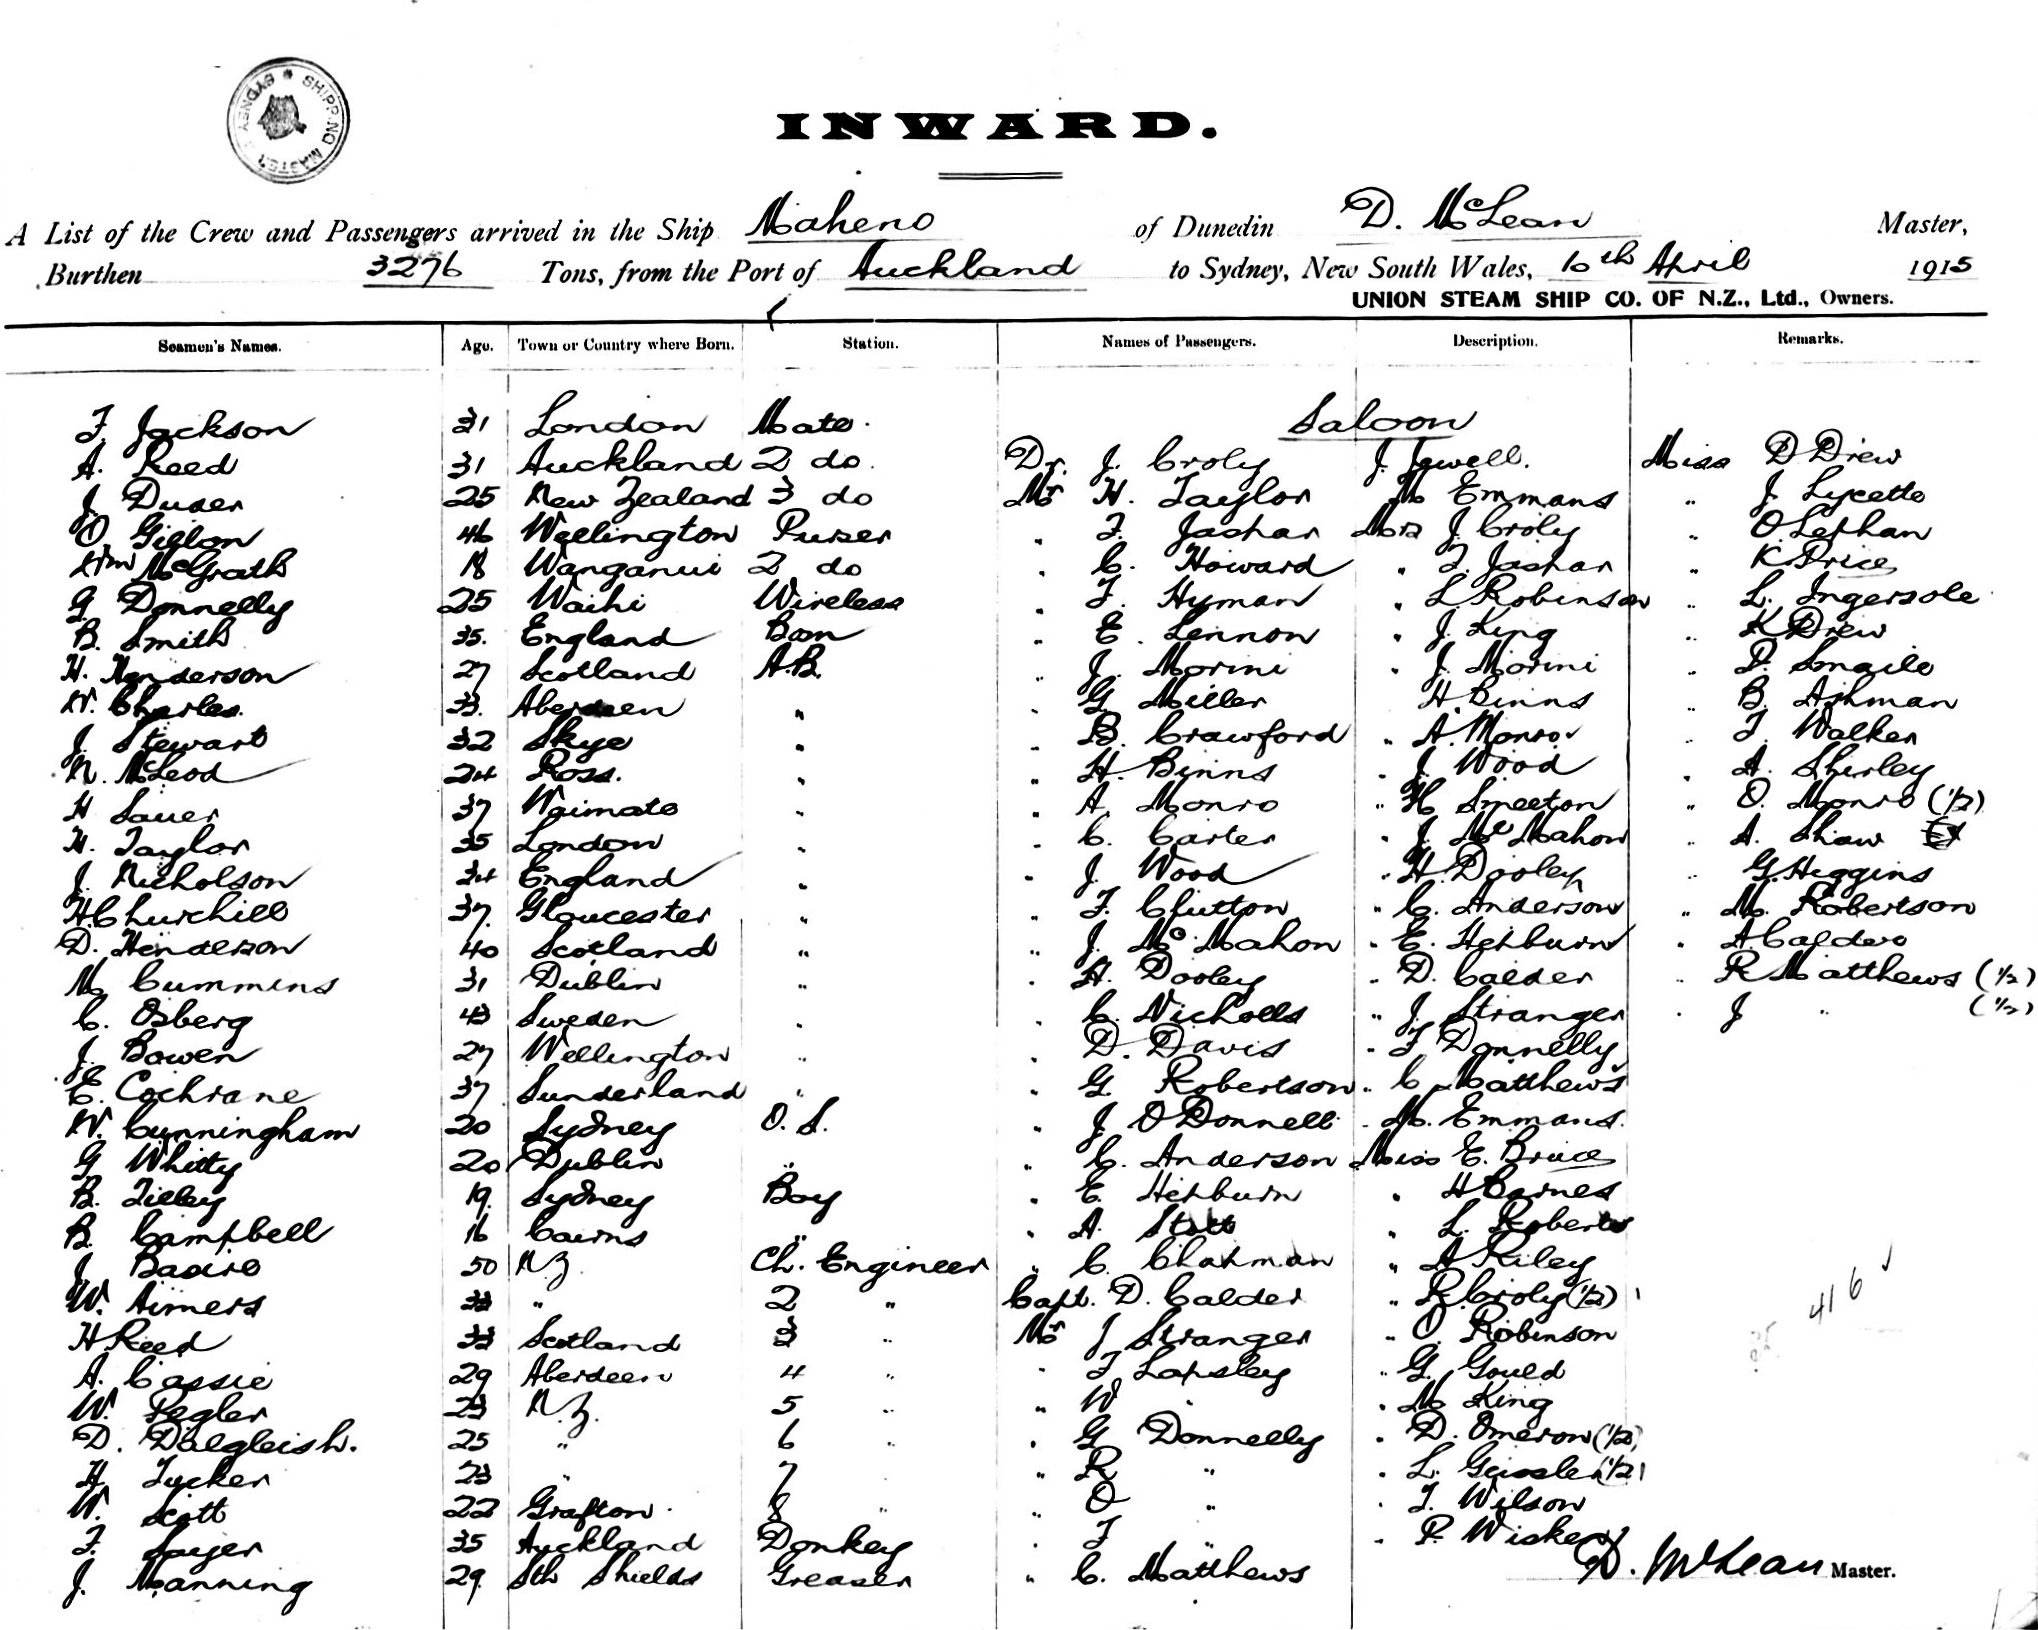 SHIPPING MASTER SYDNEY
INWARD.
A List of the Crew and Passengers arrived in the Ship Maheno of Dunedin D. McLean Master,
Burthen 3276 Tons, from the Port of Auckland to Sydney, New South Wales, 10th April 1915
UNION STEAM SHIP CO. OF N.Z., Ltd., Owners.
Seamen's Names. Age. Town or Country where Born. Station. Names of Passengers. Description. Remarks.
Saloon
F. Jackson 31 London Mate.
A. Reed 31 Auckland 2 do. Dr. J. Croly J. Jewell. Miss D Drew
J. Duder 25 New Zealand 3 do Mr H. Taylor M Emmans " J. Lycette
O. Gillon 46 Wellington Purser " F. Jashar Mrs J. Croly " O. Lephan
Wm McGrath 18 Wanganui 2 do " C. Howard " F. Jashar " K. Price
G Donnelly 25 Waihi Wireless " F. Hyman " L Robinson " L. Ingersole
B. Smith 35. England Bosn " E. Lennon " J. King " K Drew
H. Henderson 27 Scotland A.B. " J. Morini " J. Morini " P. Smaile
W. Charles. 33. Aberdeen " " G. Miller H Binns " B. Ashman
J. Stewart 32 Skye " " B. Crawford " A. Monro " J. Walker
N. McLeod 24 Ross. " " H. Binns " J. Wood " A. Shirley
H Sauer 37 Waimate " " A. Monro " H Smeeton " O. Monro (1/2)
H. Taylor 35 London " " C. Carter " J. McMahon " A. Shaw
J. Nicholson 34 England " " J. Wood " H. Dooley " G. Higgins
H Churchill 37. Gloucester " " F. Chutton " C. Anderson " M. Robertson
D. Henderson 40 Scotland " " J. McMahon " E. Hepburn " A Calder
M Cummins 31 Dublin " " H. Dooley " D. Calder " R Matthews (1/2)
C. Osberg 43 Sweden " " C. Nicholls " J. Stranger " J " (1/2)
J. Bowen 27 Wellington " " D. Davis " F Donnelly
E. Cochrane 37 Sunderland " " G. Robertson " C Matthews
W. Cunningham 20 Sydney O.S. " J. O Donnell " M. Emmans.
G Whitty 20 Dublin " " C. Anderson Miss E. Bruce
B. Tilley 19. Sydney Boy " E. Hepburn " H Barnes
B. Campbell 16 Cairns " " A. Stott " L. Roberts
J Basire 50 N.Z. Ch. Engineer " C. Chapman " A Riley
W. Aimers 33 " 2 " Capt. D. Calder " R Croly (1/2)
H Reed 33 Scotland 3 " Mr J Stranger " O. Robinson
416
A. Cassie 29 Aberdeen 4 " " F Lapsley " G. Gould
W. Pegler 23 N.Z. 5 " " W " " M King
D. Dalgleish. 25 " 6 " " G Donnelly " D. Omeron (1/2)
H Tucker 23 " 7 " " R " " L. Geissler (1/2)
W. Scott 22 Grafton 8 " " O " " J. Wilson
F. Sayer 35 Auckland Donkey " F " " P. Wisker
J. Manning 29. Sth Shields Greaser " C. Matthews
D. McLean Master.